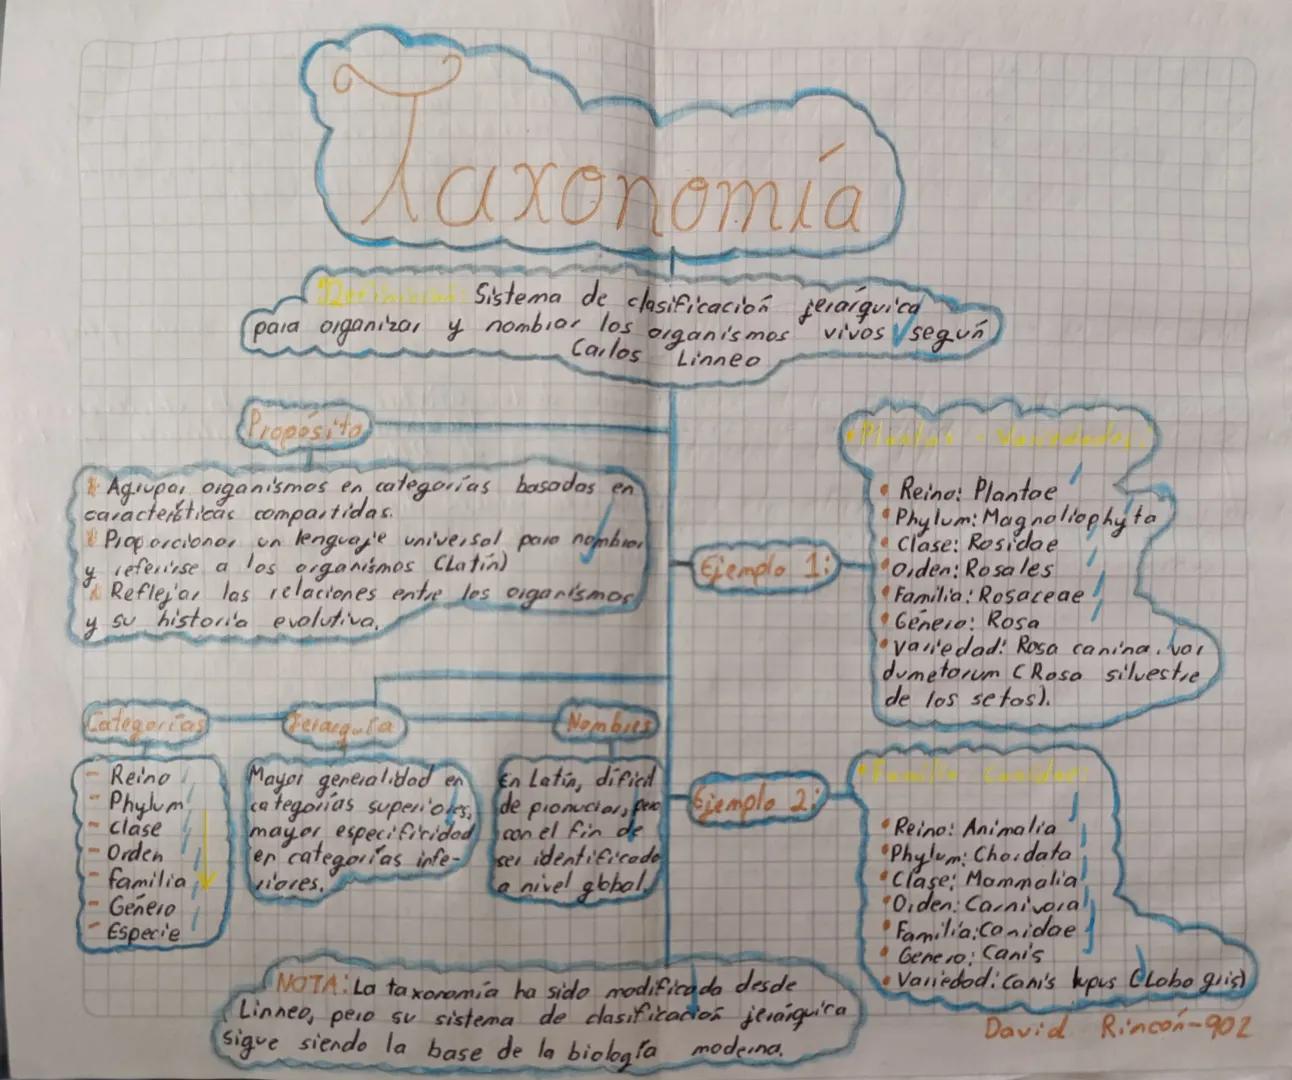 Taxonomía
Definición: Sistema de clasificación jerárquica
para organizar y nombrar los organismos vivos según
Carlos Linneo
Propósito
* Agrupar organismos en categorías basadas en
características compartidas.
* Proporcionar un lenguaje universal para nombrar
y referirse a los organismos (Latín)
* Reflejar las relaciones entre los organismos
y su historia evolutiva.
Categorías
- Reino
- Phylum
- Clase
- Orden
- familia
- Género
- Especie
Jerarquía
Mayor generalidad en
categorías superiores,
mayor especificidad
en categorías infe-
riores.
Nombres
En Latín, difícil
de pronuciar, pero
con el fin de
ser identificado
a nivel global.
Ejemplo 1:
• Plantas - Variedades:
• Reino: Plantae
• Phylum: Magnoliophyta
• Clase: Rosidae
• Orden: Rosales
• Familia: Rosaceae
• Género: Rosa
• Variedad: Rosa canina. var
dumetorum (Rosa silvestre
de los setos).
Ejemplo 2:
• Familia Canidae:
• Reino: Animalia
• Phylum: Chordata
• Clase: Mammalia
• Orden: Carnivora
• Familia: Canidae
• Genero: Canis
• Variedad: Canis lupus (Lobo gris)
NOTA: La taxonomía ha sido modificada desde
Linneo, pero su sistema de clasificación jerárquica
sigue siendo la base de la biología moderna.
David Rincón-902